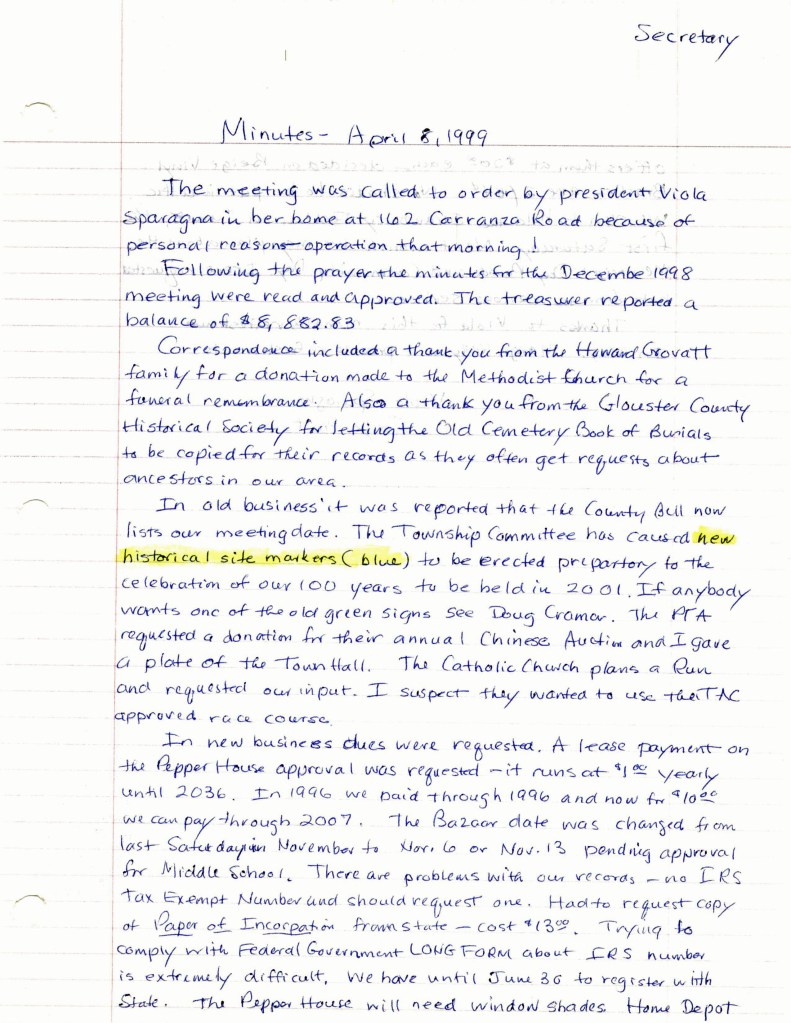 Secretary
Minutes - April 8, 1999
The meeting was called to order by president Viola
Sparagna in her home at 162 Carranza Road because of
personal reasons - operation that morning!
Following the prayer the minutes for the Decembe 1998
meeting were read and approved. The treasurer reported a
balance of $8,882.83
Correspondence included a thank you from the Howard Grovatt
family for a donation made to the Methodist Church for a
funeral remembrance. Also a thank you from the Glouster County
Historical Society for letting the Old Cemetery Book of Burials
to be copied for their records as they often get requests about
ancestors in our area.
In old business it was reported that the County Bell now
lists our meeting date. The Township Committee has caused new
historical site markers (blue) to be erected prepartory to the
celebration of our 100 years to be held in 2001. If anybody
wants one of the old green signs see Doug Cramer. The PTA
requested a donation for their annual Chinese Auction and I gave
a plate of the Town Hall. The Catholic Church plans a Run
and requested our input. I suspect they wanted to use the TAC
approved race course.
In new business dues were requested. A lease payment on
the Pepper House approval was requested - it runs at $1.00 yearly
until 2036. In 1996 we paid through 1996 and now for $10.00
we can pay through 2007. The Bazaar date was changed from
last Saturday in November to Nov. 6 or Nov. 13 pending approval
for Middle School. There are problems with our records - no IRS
Tax Exempt Number and should request one. Had to request copy
of Paper of Incorpation from state - cost $13.00. Trying to
comply with Federal Government LONG FORM about IRS number
is extremely difficult. We have until June 30 to register with
State. The Pepper House will need window shades Home Depot